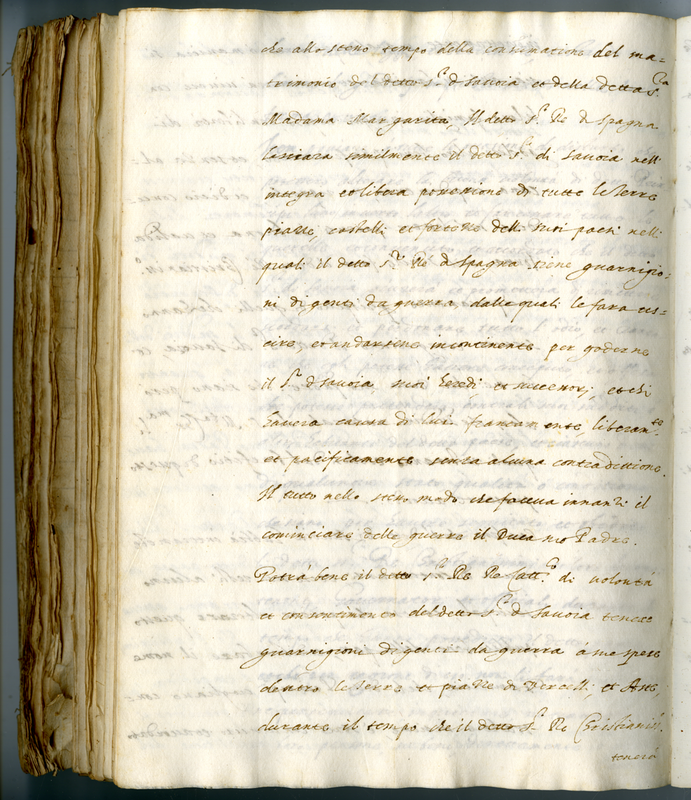 che allo stesso tempo della consumatione del ma=
trimonio del detto s.r di Sauoia et della detta S.ra
Madama Margarita, Il detto s.r Re di Spagna
lasciara similmente il detto s.r di Sauoia nell'
integra et libera possessione di tutte le Terre
piazze, castelli et fortezze delli suoi paesi nelli
quali il detto s.r Re di Spagna tiene guarnigio-
ni di genti da guerra, dalle quali le fara us=
cire, et andarsene incontinente per goderne
il s.r di Sauoia, suoi heredi, et successori, et chi
hauera causa di lui francamente, liberam.te
et pacificamente senza alcuna contradittione.
Il tutto nello stesso modo che faceua innanzi il
cominciare delle guerra il Duca suo Padre.
Potrà bene il detto s.r Re Catt.co di uolontà
et consentimento del detto s.r di Sauoia tenere
guarnigioni di genti da guerra à sue spese
dentro le Terre et piazze di Vercelli, et Aste,
durante il tempo che il detto s.r Re Christianiss.
tenerà